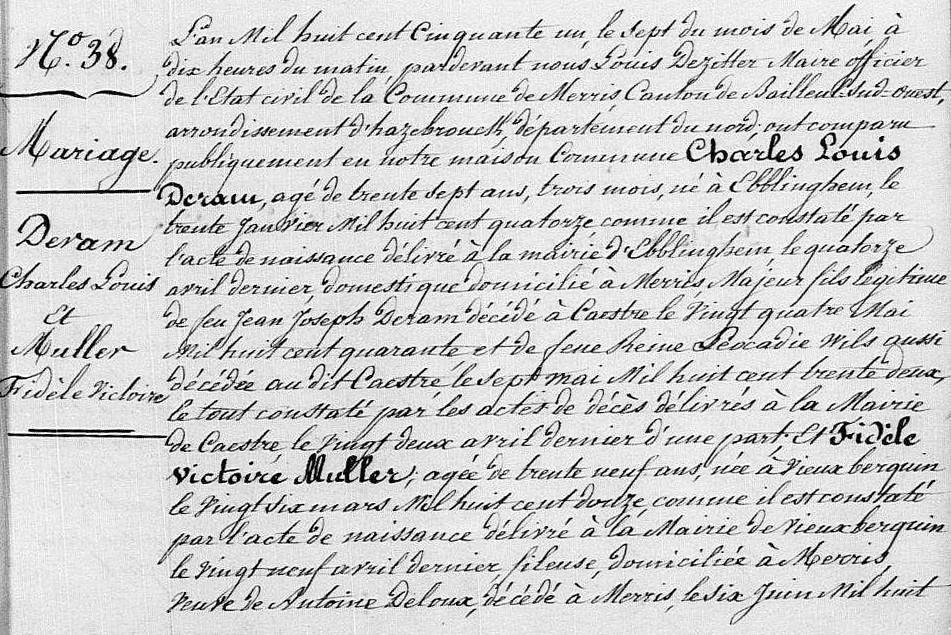 N.º 38.
Mariage.
Deram
Charles Louis
et
Muller
Fidèle Victoire
L'an Mil huit cent Cinquante un le Sept du mois de Mai, à
dix heures du matin, pardevant nous Louis Dezitter Maire officier
de l'Etat civil de la Commune de Merris Canton de Bailleul-Sud-ouest,
arrondissement d'hazebrouck, département du nord, ont comparu
publiquement en notre maison Commune Charles Louis
Deram, agé de trente sept ans, trois mois, né à Ebblinghem, le
trente Janvier Mil huit cent quatorze comme il est constaté par
l'acte de naissance délivré à la mairie d'Ebblinghem, le quatorze
avril dernier domestique domicilié à Merris Majeur fils légitime
de feu Jean Joseph Deram décédé à Caestre le Vingt quatre Mai
Mil huit cent quarante et de feue Reine Léocadie Wils aussi
décédée au dit Caestre le sept mai Mil huit cent trente deux,
le tout constaté par les actes de décès délivrés à la Mairie
de Caestre, le Vingt deux avril dernier d'une part. Et Fidèle
Victoire Muller, agée de trente neuf ans, née à Vieux berquin
le Vingt six mars Mil huit cent douze, comme il est constaté
par l'acte de naissance délivré à la Mairie de Vieux berquin
le Vingt neuf avril dernier fileuse, domiciliée à Merris,
Veuve de Antoine Deloux, décédé à Merris, le six Juin Mil huit